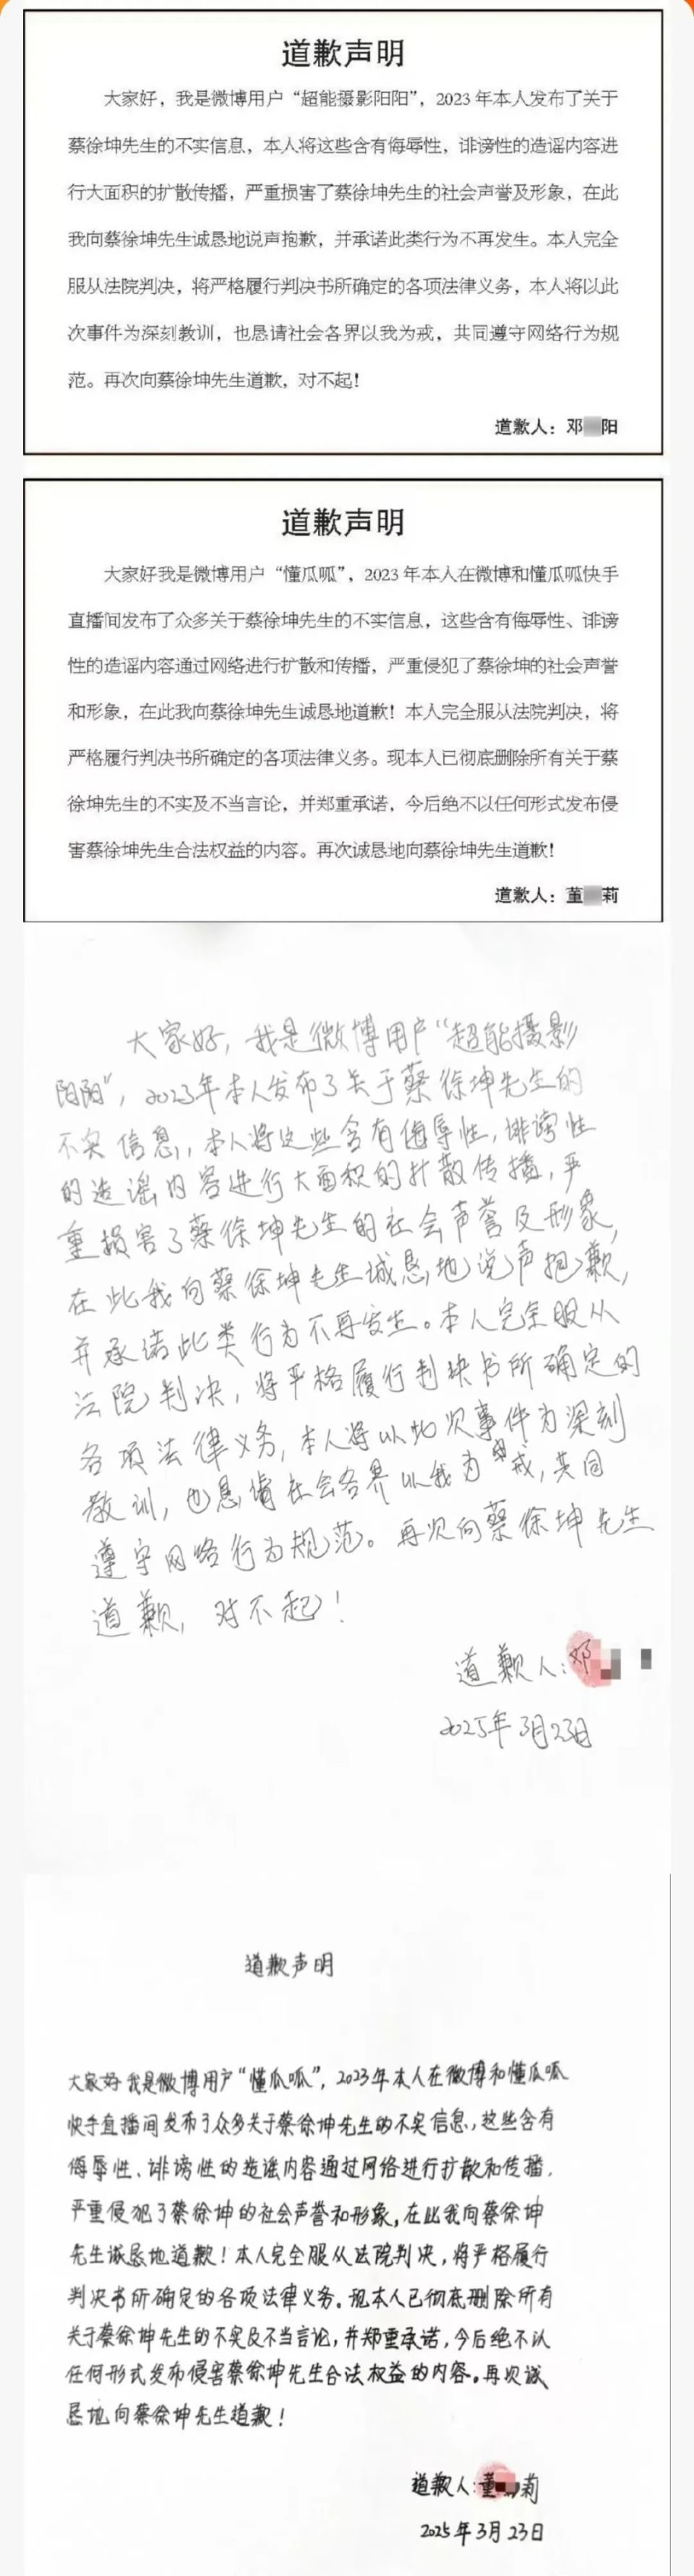 道歉声明
大家好，我是微博用户“超能摄影阳阳”，2023年本人发布了关于
蔡徐坤先生的不实信息，本人将这些含有侮辱性，诽谤性的造谣内容进
行大面积的扩散传播，严重损害了蔡徐坤先生的社会声誉及形象，在此
我向蔡徐坤先生诚恳地说声抱歉，并承诺此类行为不再发生。本人完全
服从法院判决，将严格履行判决书所确定的各项法律义务，本人将以此
次事件为深刻教训，也恳请社会各界以我为戒，共同遵守网络行为规
范。再次向蔡徐坤先生道歉，对不起！
道歉人：邓 阳
道歉声明
大家好我是微博用户“懂瓜呱”，2023年本人在微博和懂瓜呱快手
直播间发布了众多关于蔡徐坤先生的不实信息，这些含有侮辱性、诽谤
性的造谣内容通过网络进行扩散和传播，严重侵犯了蔡徐坤的社会声誉
和形象，在此我向蔡徐坤先生诚恳地道歉！本人完全服从法院判决，将
严格履行判决书所确定的各项法律义务。现本人已彻底删除所有关于蔡
徐坤先生的不实及不当言论，并郑重承诺，今后绝不以任何形式发布侵
害蔡徐坤先生合法权益的内容。再次诚恳地向蔡徐坤先生道歉！
道歉人：董 莉
大家好，我是微博用户“超能摄影
阳阳”，2023年本人发布了关于蔡徐坤先生的
不实信息，本人将这些含有侮辱性，诽谤性
的造谣内容进行大面积的扩散传播，严
重损害了蔡徐坤先生的社会声誉及形象，
在此我向蔡徐坤先生诚恳地说声抱歉，
并承诺此类行为不再发生。本人完全服从
法院判决，将严格履行判决书所确定的
各项法律义务，本人将以此次事件为深刻
教训，也恳请社会各界以我为戒，共同
遵守网络行为规范。再次向蔡徐坤先生
道歉，对不起！
道歉人：邓
2025年3月23日
道歉声明
大家好我是微博用户“懂瓜呱”，2023年本人在微博和懂瓜呱
快手直播间发布了众多关于蔡徐坤先生的不实信息，这些含有
侮辱性、诽谤性的造谣内容通过网络进行扩散和传播，
严重侵犯了蔡徐坤的社会声誉和形象，在此我向蔡徐坤
先生诚恳地道歉！本人完全服从法院判决，将严格履行
判决书所确定的各项法律义务。现本人已彻底删除所有
关于蔡徐坤先生的不实及不当言论，并郑重承诺，今后绝不以
任何形式发布侵害蔡徐坤先生合法权益的内容。再次诚
恳地向蔡徐坤先生道歉！
道歉人：董 莉
2025年3月23日